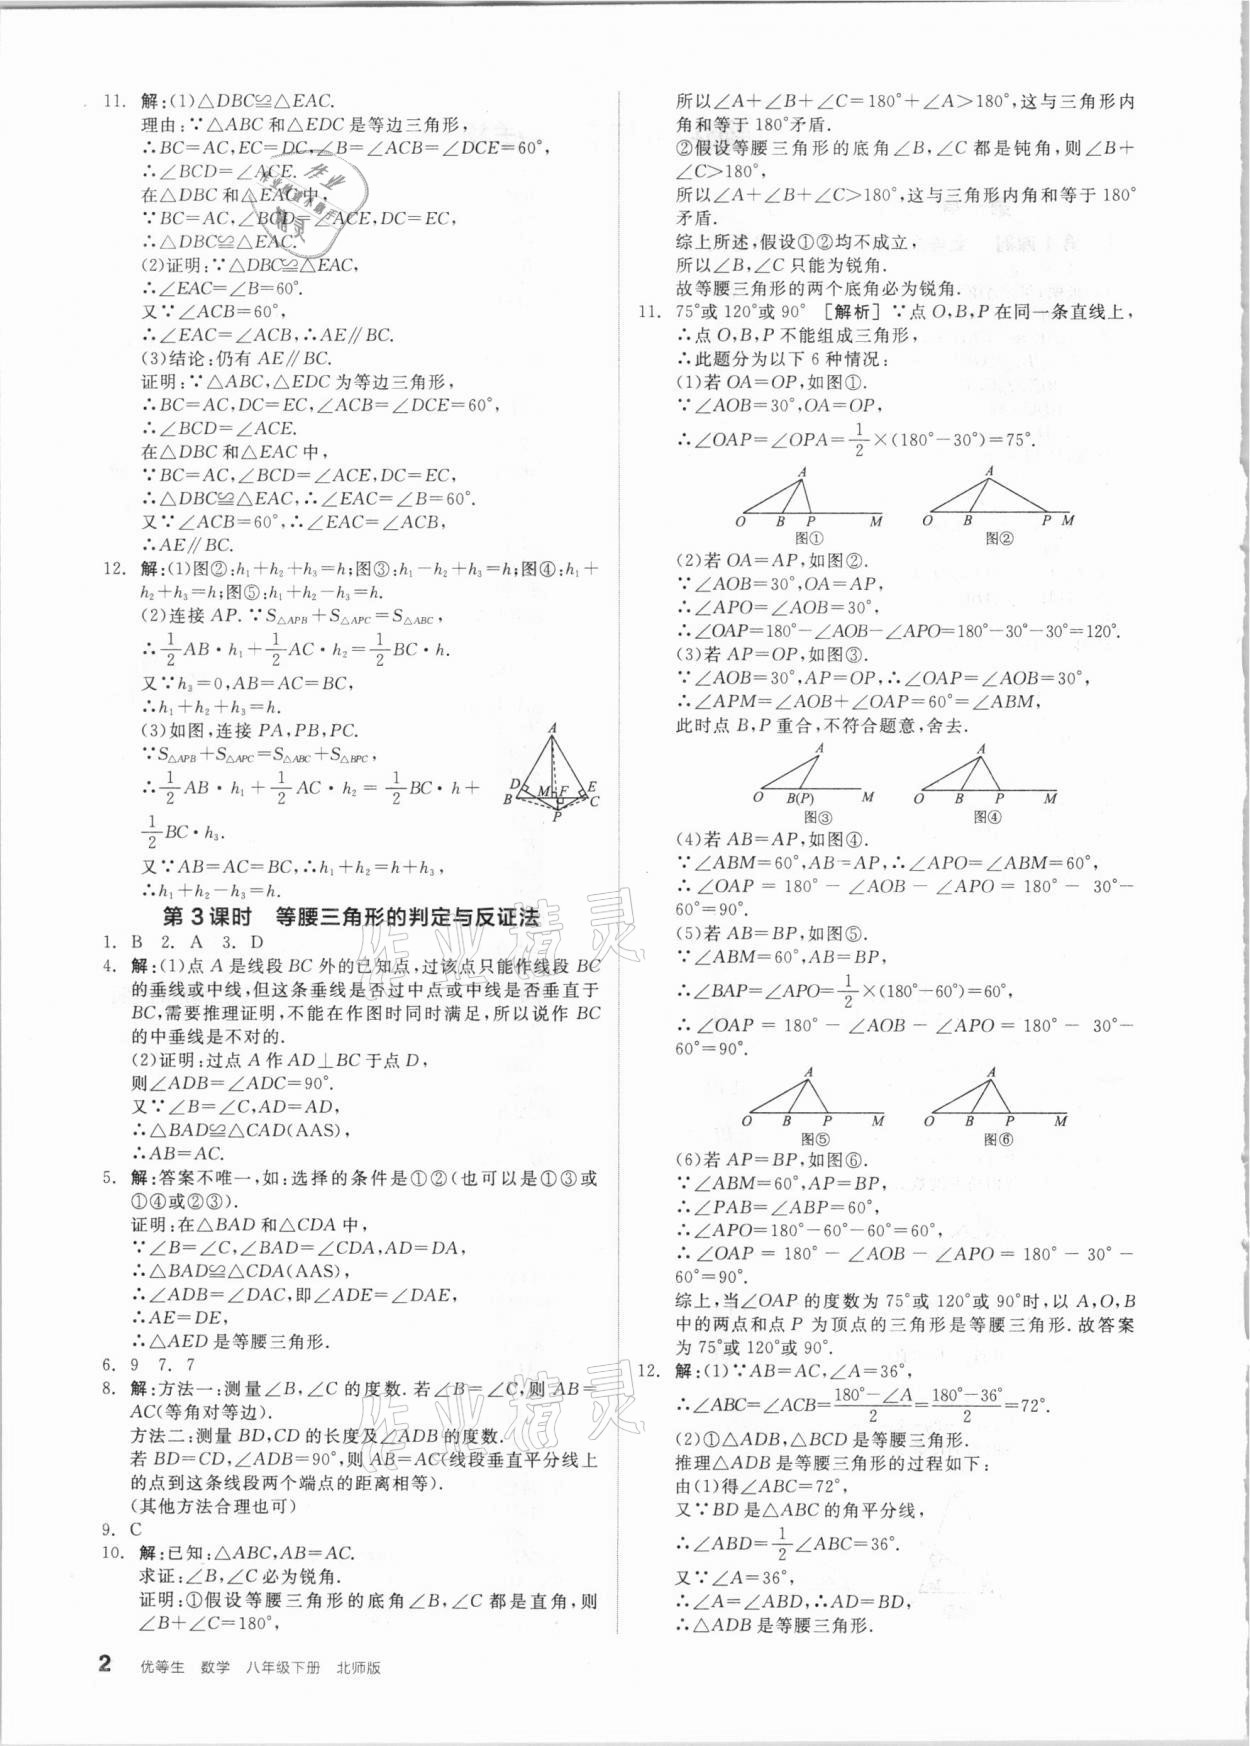 11. 解:(1)△DBC≌△EAC.
理由:∵△ABC和△EDC是等边三角形,
∴BC=AC,EC=DC,∠B=∠ACB=∠DCE=60°,
∴∠BCD=∠ACE.
在△DBC和△EAC中,
∵BC=AC,∠BCD=∠ACE,DC=EC,
∴△DBC≌△EAC.
(2)证明:∵△DBC≌△EAC,
∴∠EAC=∠B=60°.
又∵∠ACB=60°,
∴∠EAC=∠ACB,∴AE∥BC.
(3)结论:仍有AE∥BC.
证明:∵△ABC,△EDC为等边三角形,
∴BC=AC,DC=EC,∠ACB=∠DCE=60°,
∴∠BCD=∠ACE.
在△DBC和△EAC中,
∵BC=AC,∠BCD=∠ACE,DC=EC,
∴△DBC≌△EAC,∴∠EAC=∠B=60°.
又∵∠ACB=60°,∴∠EAC=∠ACB,
∴AE∥BC.
12. 解:(1)图②:h₁+h₂+h₃=h;图③:h₁-h₂+h₃=h;图④:h₁+
h₂+h₃=h;图⑤:h₁+h₂-h₃=h.
(2)连接AP.∵S△APB+S△APC=S△ABC,
∴1/2 AB·h₁+1/2 AC·h₂=1/2 BC·h.
又∵h₃=0,AB=AC=BC,
∴h₁+h₂+h₃=h.
(3)如图,连接PA,PB,PC.
∵S△APB+S△APC=S△ABC+S△BPC,
∴1/2 AB·h₁+1/2 AC·h₂=1/2 BC·h+
1/2 BC·h₃.
又∵AB=AC=BC,∴h₁+h₂=h+h₃,
∴h₁+h₂-h₃=h.
A
D
M
F
E
B
C
P
第3课时 等腰三角形的判定与反证法
1. B 2. A 3. D
4. 解:(1)点A是线段BC外的已知点,过该点只能作线段BC
的垂线或中线,但这条垂线是否过中点或中线是否垂直于
BC,需要推理证明,不能在作图时同时满足,所以说作BC
的中垂线是不对的.
(2)证明:过点A作AD⊥BC于点D,
则∠ADB=∠ADC=90°.
又∵∠B=∠C,AD=AD,
∴△BAD≌△CAD(AAS),
∴AB=AC.
5. 解:答案不唯一,如:选择的条件是①②(也可以是①③或
①④或②③).
证明:在△BAD和△CDA中,
∵∠B=∠C,∠BAD=∠CDA,AD=DA,
∴△BAD≌△CDA(AAS),
∴∠ADB=∠DAC,即∠ADE=∠DAE,
∴AE=DE,
∴△AED是等腰三角形.
6. 9 7. 7
8. 解:方法一:测量∠B,∠C的度数.若∠B=∠C,则AB=
AC(等角对等边).
方法二:测量BD,CD的长度及∠ADB的度数.
若BD=CD,∠ADB=90°,则AB=AC(线段垂直平分线上
的点到这条线段两个端点的距离相等).
(其他方法合理也可)
9. C
10. 解:已知:△ABC,AB=AC.
求证:∠B,∠C必为锐角.
证明:①假设等腰三角形的底角∠B,∠C都是直角,则
∠B+∠C=180°,
2 优等生 数学 八年级下册 北师版
所以∠A+∠B+∠C=180°+∠A>180°,这与三角形内
角和等于180°矛盾.
②假设等腰三角形的底角∠B,∠C都是钝角,则∠B+
∠C>180°,
所以∠A+∠B+∠C>180°,这与三角形内角和等于180°
矛盾.
综上所述,假设①②均不成立,
所以∠B,∠C只能为锐角.
故等腰三角形的两个底角必为锐角.
11. 75°或120°或90° [解析]∵点O,B,P在同一条直线上,
∴点O,B,P不能组成三角形,
∴此题分为以下6种情况:
(1)若OA=OP,如图①.
∵∠AOB=30°,OA=OP,
∴∠OAP=∠OPA=1/2×(180°-30°)=75°.
A A
O B P M O B P M
图① 图②
(2)若OA=AP,如图②.
∵∠AOB=30°,OA=AP,
∴∠APO=∠AOB=30°,
∴∠OAP=180°-∠AOB-∠APO=180°-30°-30°=120°.
(3)若AP=OP,如图③.
∵∠AOB=30°,AP=OP,∴∠OAP=∠AOB=30°,
∴∠APM=∠AOB+∠OAP=60°=∠ABM,
此时点B,P重合,不符合题意,舍去.
A A
O B(P) M O B P M
图③ 图④
(4)若AB=AP,如图④.
∵∠ABM=60°,AB=AP,∴∠APO=∠ABM=60°,
∴∠OAP=180°-∠AOB-∠APO=180°-30°-
60°=90°.
(5)若AB=BP,如图⑤.
∵∠ABM=60°,AB=BP,
∴∠BAP=∠APO=1/2×(180°-60°)=60°,
∴∠OAP=180°-∠AOB-∠APO=180°-30°-
60°=90°.
A A
O B P M O B P M
图⑤ 图⑥
(6)若AP=BP,如图⑥.
∵∠ABM=60°,AP=BP,
∴∠PAB=∠ABP=60°,
∴∠APO=180°-60°-60°=60°,
∴∠OAP=180°-∠AOB-∠APO=180°-30°-
60°=90°.
综上,当∠OAP的度数为75°或120°或90°时,以A,O,B
中的两点和点P为顶点的三角形是等腰三角形.故答案
为75°或120°或90°.
12. 解:(1)∵AB=AC,∠A=36°,
∴∠ABC=∠ACB=(180°-∠A)/2=(180°-36°)/2=72°.
(2)①△ADB,△BCD是等腰三角形.
推理△ADB是等腰三角形的过程如下:
由(1)得∠ABC=72°,
又∵BD是△ABC的角平分线,
∴∠ABD=1/2∠ABC=36°.
又∵∠A=36°,
∴∠A=∠ABD,∴AD=BD,
∴△ADB是等腰三角形.
作业精灵
作业精灵